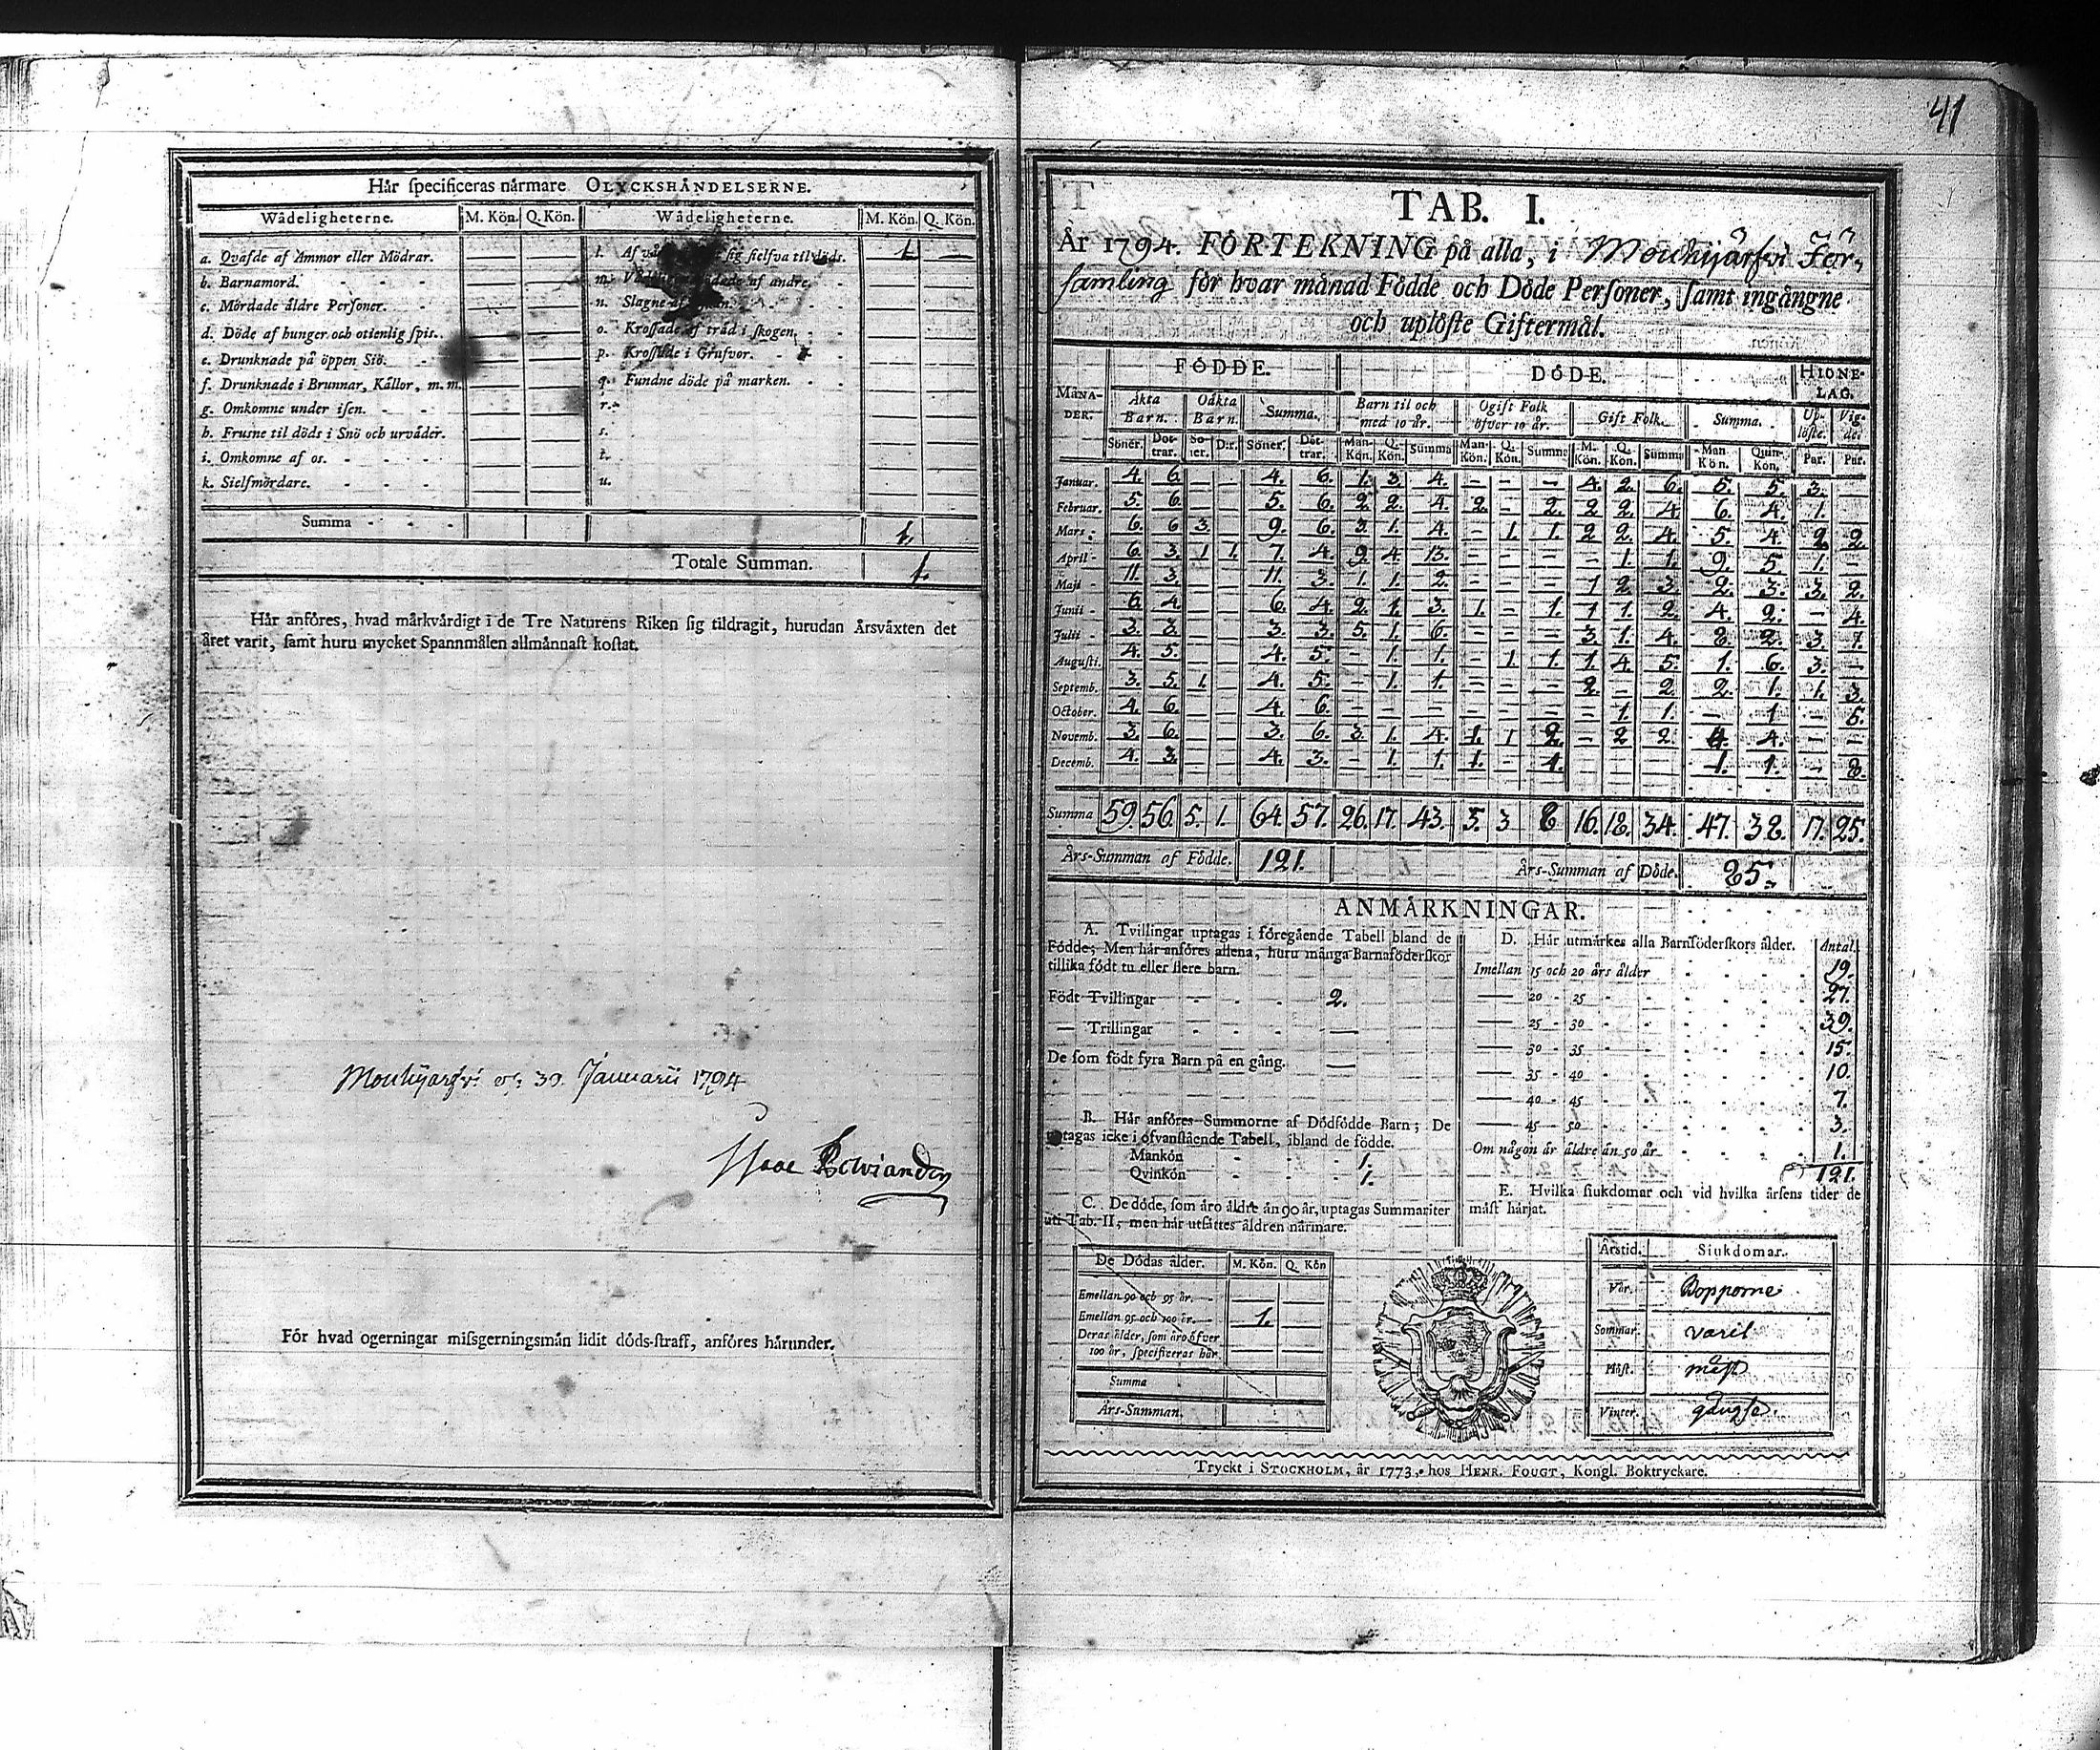 Hår specificeras nårmare OLYCKSHÅNDELSERNE.
Wådeligheterne. M. Kön. Q. Kön. Wådeligheterne. M. Kön. Q. Kön.
a. Qvafde af Ammor eller Mödrar. — —
l. Af våd sig sielfva tilvlöds. 1. —
b. Barnamord. — —
af andre.
c. Mördade åldre Personer. — —
n. Slagne af
d. Döde af hunger och otienlig spis. — —
o. Krossade af tråd i skogen.
e. Drunknade på öppen Siö. — —
p. Krossade i Grufvor.
f. Drunknade i Brunnar, Kållor, m. m. — —
q. Fundne döde på marken.
g. Omkomne under isen. — —
r.
h. Frusne til döds i Snö och urvåder. — —
s.
i. Omkomne af os. — —
t.
k. Sielfmördare. — —
u.
Summa 1.
Totale Summan. 1.
Hår anföres, hvad mårkvårdigt i de Tre Naturens Riken sig tildragit, hurudan Årsvåxten det
året varit, samt huru mycket Spannmålen allmånnast kostat.
Januarii 1794
För hvad ogerningar missgerningsmån lidit döds-straff, anföres hårunder.
41
TAB. I.
År 1794. FÖRTEKNING på alla, i Mouhijärfvi För-
samling för hvar månad Födde och Döde Personer, samt ingångne
och uplöste Giftermål.
MÅNA-DER. FÖDDE. DÖDE. HIONE-LAG.
Åkta Barn. Oåkta Barn. Summa. Barn til och med 10 år. Ogift Folk öfver 10 år. Gift Folk. Summa. Up-löste. Vig-de.
Söner. Döt-trar. Sö-ner. D:r. Söner. Döt-trar. Man-Kön. Q. Kön. Summa Man-Kön. Q. Kön. Summa M. Kön. Q. Kön. Summa Man Kön. Quin-Kön. Par. Par.
Januar. 4. 6. — — 4. 6. 1. 3. 4. — — — 4. 2. 6. 5. 5. 3. —
Februar. 5. 6. — — 5. 6. 2. 2. 4. 2. — 2. 2 2. 4 6. 4. 1. —
Mars 6. 6 3. — 9. 6. 3. 1. 4. — 1. 1. 2 2. 4. 5. 4. 2. 2.
April 6. 3. 1 1. 7. 4. 9. 4. 13. — — — — 1. 1. 9. 5. 1. —
Maji 11. 3. — — 11. 3. 1. 1. 2. — — — 1 2. 3. 2. 3. 3. 2.
Junii 6. 4. — — 6. 4. 2. 1. 3. 1. — 1. 1 1. 2. 4. 2. — 4.
Julii 3. 3. — — 3. 3. 5. 1. 6. — — — 3. 1. 4. 8. 2. 3. 1.
Augusti. 4. 5. — — 4. 5. — 1. 1. — 1. 1. 1. 4. 5. 1. 6. 3. —
Septemb. 3. 5. 1. — 4. 5. — 1. 1. — — — 2. — 2. 2. 1. 1. 3.
October. 4. 6. — — 4. 6. — — — — — — — 1. 1. — 1. — 5.
Novemb. 3. 6. — — 3. 6. 3. 1. 4. 1. 1 2. — 2 2. 4. 4. — —
Decemb. 4. 3. — — 4. 3. — 1. 1. 1. — 1. — — — 1. 1. — 8.
Summa 59. 56. 5. 1. 64. 57. 26. 17. 43. 5. 3 8 16. 18. 34. 47. 38. 17. 25.
Års-Summan af Födde. 121. Års-Summan af Döde. 85.
ANMÅRKNINGAR.
A. Tvillingar uptagas i föregående Tabell bland de
Födde; Men hår anföres allena, huru många Barnaföderskor
tillika födt tu eller flere barn.
Födt Tvillingar 2.
— Trillingar —
De som födt fyra Barn på en gång. —
B. Hår anföres Summorne af Dödfödde Barn; De
uptagas icke i ofvanstående Tabell, ibland de födde.
Mankön 1.
Qvinkön 1.
C. De döde, som åro åldre ån 90 år, uptagas Summariter
uti Tab. II, men hår utsåttes åldren nårmare.
De Dödas ålder. M. Kön. Q. Kön
Emellan 90 och 95 år. — —
Emellan 95 och 100 år. 1. —
Deras ålder, som åro öfver
100 år, specificeras hår — —
Summa
Års-Summan.
D. Hår utmårkes alla Barnföderskors ålder. Antal.
Imellan 15 och 20 års ålder 19.
— 20 - 25 27.
— 25 - 30 39.
— 30 - 35 15.
— 35 - 40 10.
— 40 - 45 7.
— 45 - 50 3.
Om någon år åldre ån 50 år 1.
121.
E. Hvilka siukdomar och vid hvilka årsens tider de
måst hårjat.
Årstid. Siukdomar.
Vår. Kopporne
Sommar. varit
Höst. mäst
Vinter. gångse.
Tryckt i STOCKHOLM, år 1773, hos HENR. FOUGT, Kongl. Boktryckare.